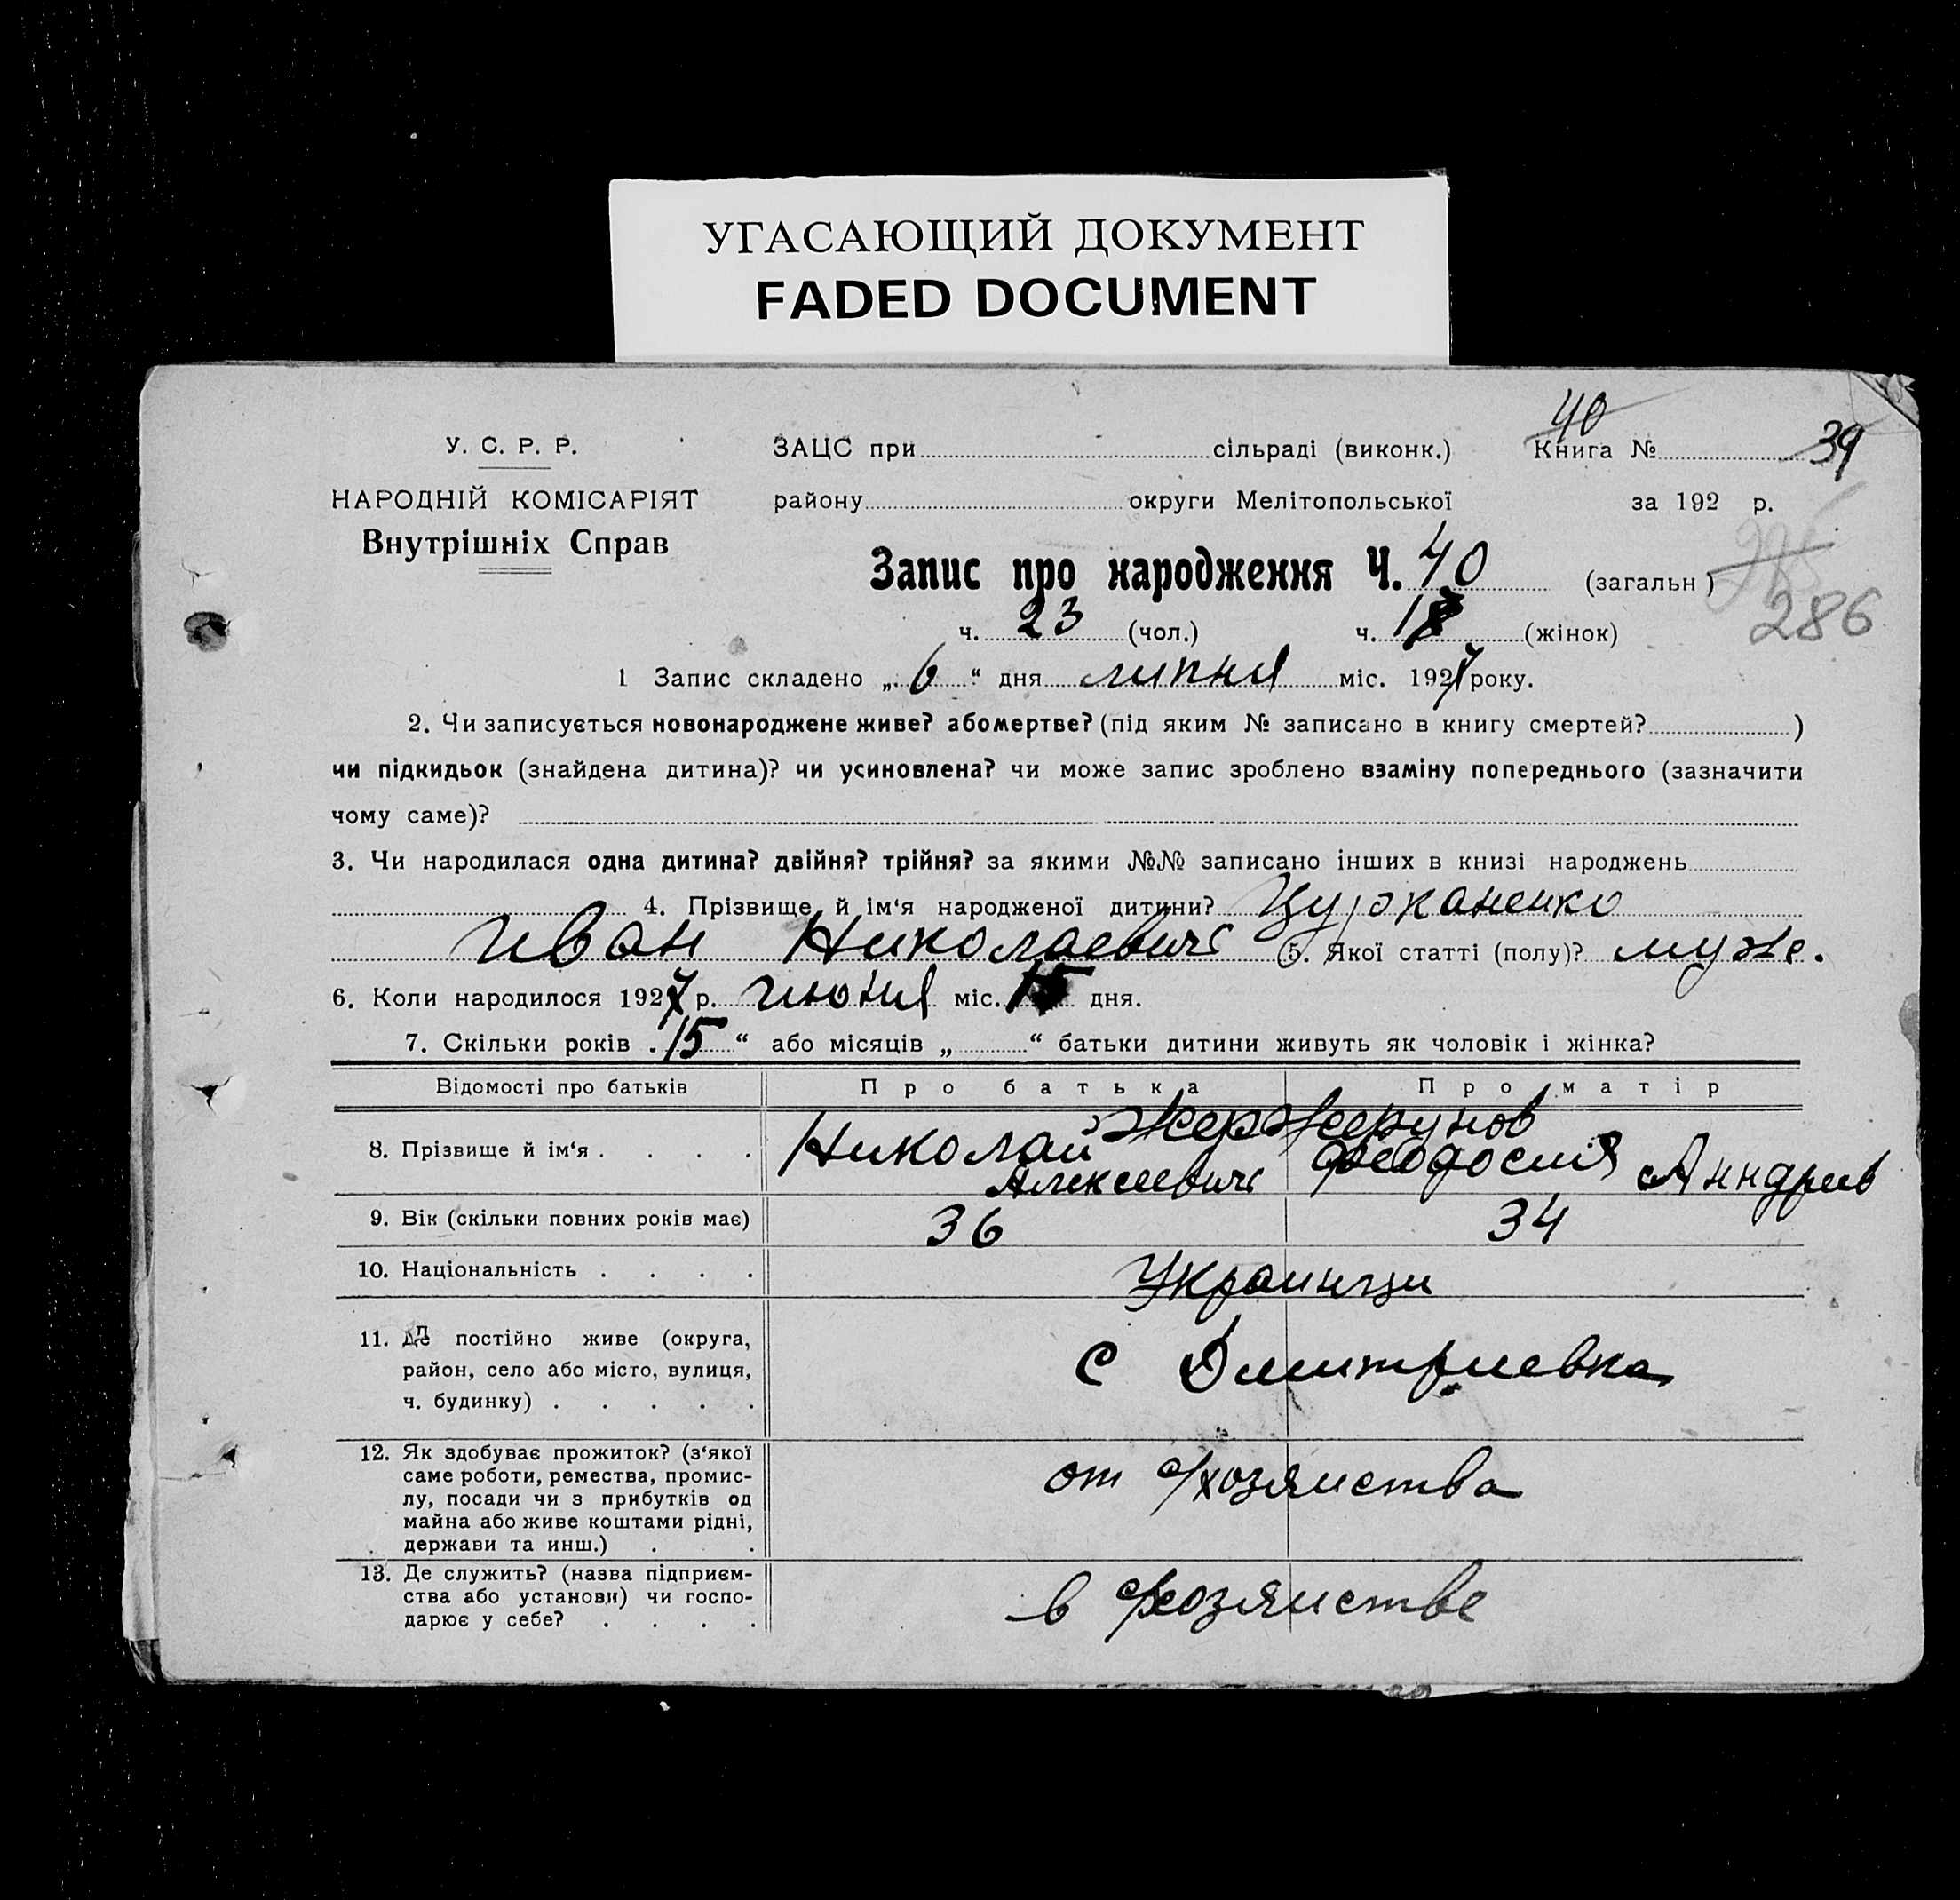 УГАСАЮЩИЙ ДОКУМЕНТ
FADED DOCUMENT
40
У. С. Р. Р. ЗАЦС при сільраді (виконк.) Книга № 39
НАРОДНІЙ КОМІСАРІЯТ району округи Мелітопольської за 192 р.
Внутрішніх Справ
Запис про народження Ч. 40 (загальн )
286
ч. 23 (чол.) ч. (жінок)
1 Запис складено „ 6 “ дня липня міс. 1927 року.
2. Чи записується новонароджене живе? або мертве? (під яким № записано в книгу смертей? )
чи підкидьок (знайдена дитина)? чи усиновлена? чи може запис зроблено взаміну попереднього (зазначити
чому саме)?
3. Чи народилася одна дитина? двійня? трійня? за якими №№ записано інших в книзі народжень
4. Прізвище й ім‘я народженої дитини? Цурканенко
Иван Николаевич 5. Якої статті (полу)? муже.
6. Коли народилося 1927 р. Июня міс. 15 дня.
7. Скільки років „ 15 “ або місяців „ “ батьки дитини живуть як чоловік і жінка?
Відомості про батьків Про батька Про матір
8. Прізвище й ім‘я . . . . Николай Алексеевич Феодосия Анндрив
9. Вік (скільки повних років має) 36 34
10. Національність . . . . Украинци
11. Де постійно живе (округа,
район, село або місто, вулиця, с Дмитриевка
ч. будинку) . . . . .
12. Як здобуває прожиток? (з‘якої
саме роботи, ремества, промис- от хозяиства
лу, посади чи з прибутків од
майна або живе коштами рідні,
держави та инш.) . .
13. Де служить? (назва підприєм-
ства або установи) чи госпо- в хозяистве
дарює у себе? . . . .